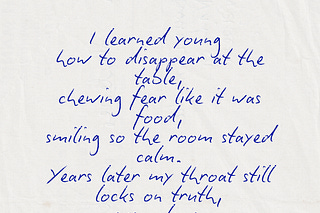 I learned young
how to disappear at the
table,
chewing fear like it was
food,
smiling so the room stayed
calm.
Years later my throat still
locks on truth,